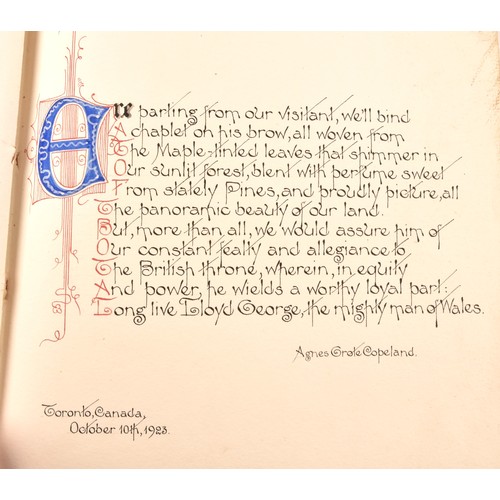 Ere parting from our visitant, we'll bind
A chaplet on his brow, all woven from
The Maple-tinted leaves that shimmer in
Our sunlit forest, blent with perfume sweet
From stately Pines, and proudly picture, all
The panoramic beauty of our land.
But, more than all, we would assure him of
Our constant fealty and allegiance to
The British throne, wherein, in equity
And power, he wields a worthy loyal part:
Long live Lloyd George, the mighty man of Wales.
Agnes Grote Copeland.
Toronto, Canada,
October 10th, 1923.